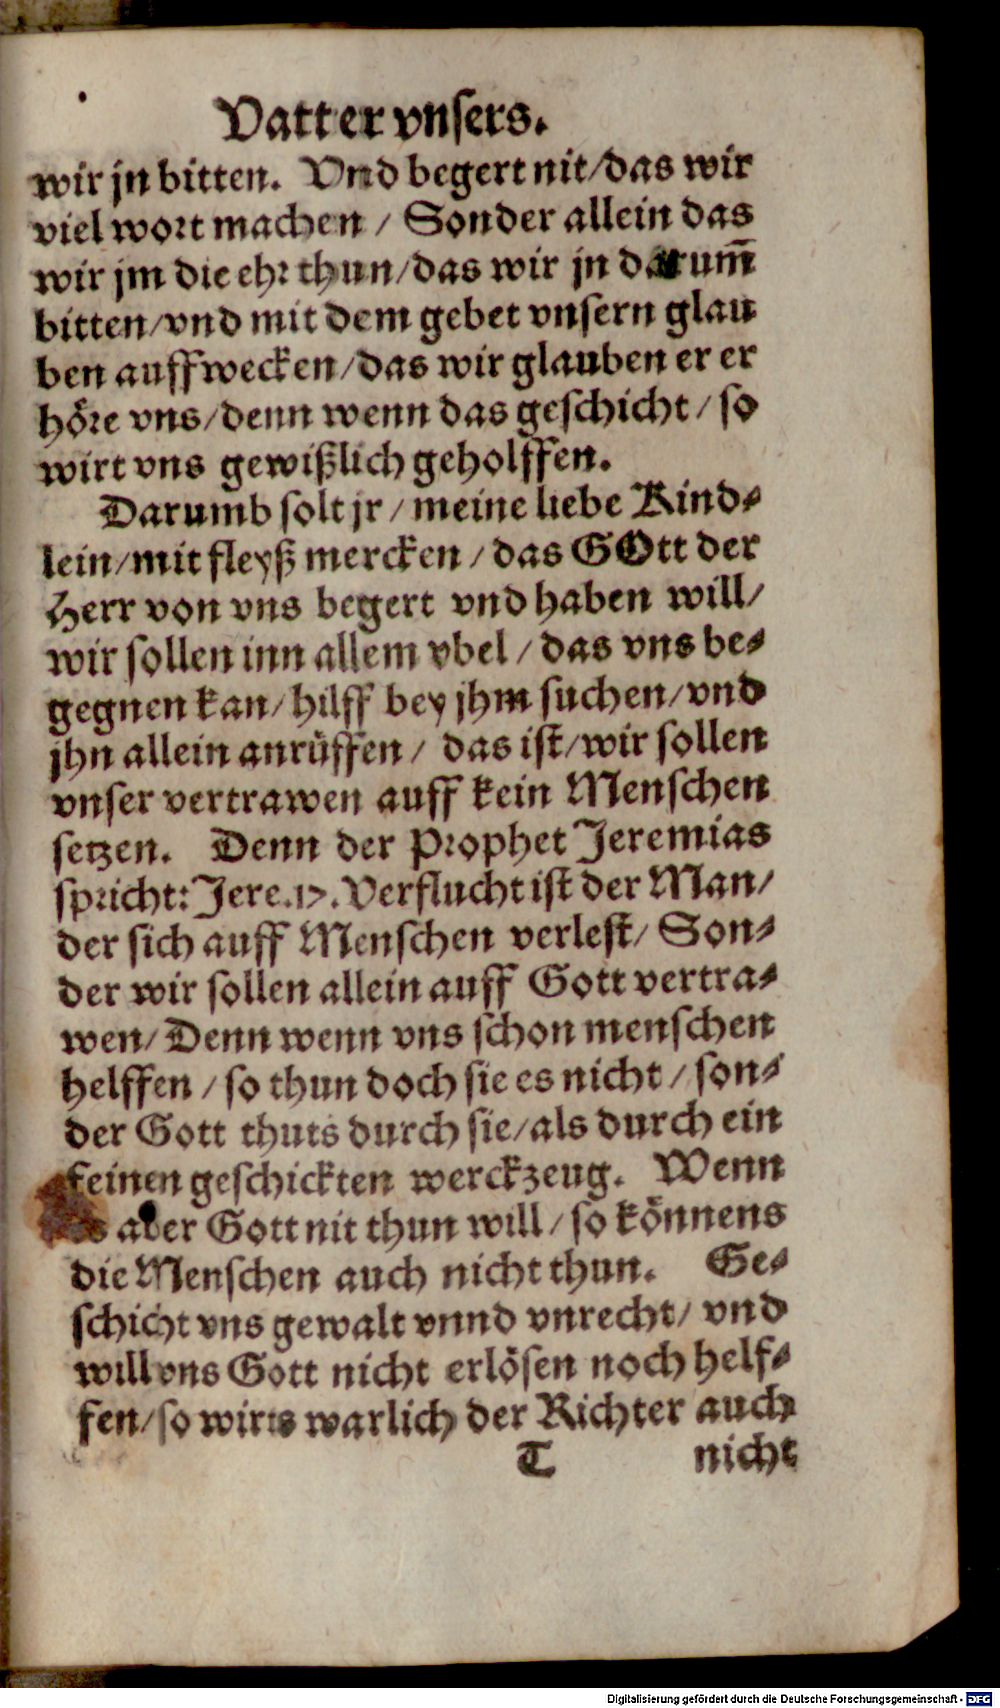 Vatter vnsers.
wir jn bitten. Vnd begert nit/das wir
viel wort machen / Sonder allein das
wir jm die ehr thun/das wir jn darum̄
bitten/vnd mit dem gebet vnsern glau
ben auffwecken/das wir glauben er er
höre vns/denn wenn das geschicht/so
wirt vns gewißlich geholffen.
Darumb solt jr/meine liebe Kind⸗
lein/mit fleyß mercken/das GOtt der
Herr von vns begert vnd haben will/
wir sollen inn allem vbel/das vns be⸗
gegnen kan/hilff bey jhm suchen/vnd
jhn allein anrüffen/ das ist/wir sollen
vnser vertrawen auff kein Menschen
setzen. Denn der Prophet Jeremias
spricht: Jere.17. Verflucht ist der Man/
der sich auff Menschen verlest/ Son⸗
der wir sollen allein auff Gott vertra⸗
wen/Denn wenn vns schon menschen
helffen/so thun doch sie es nicht/son⸗
der Gott thuts durch sie/als durch ein
feinen geschickten werckzeug. Wenn
aber Gott nit thun will/so könnens
die Menschen auch nicht thun. Ge⸗
schicht vns gewalt vnnd vnrecht/ vnd
will vns Gott nicht erlösen noch helf⸗
fen/so wirts warlich der Richter auch
T nicht
Digitalisierung gefördert durch die Deutsche Forschungsgemeinschaft - DFG